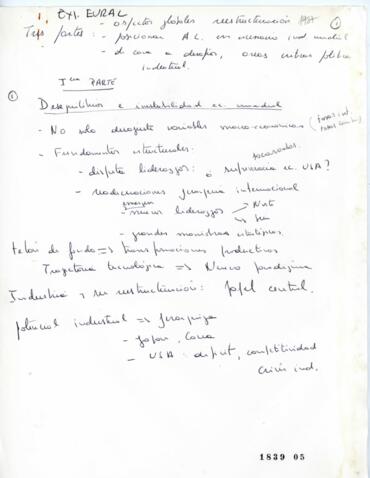 EXI. EURAL
- aspectos globales reestructuración (1)
Tres partes: - posicionar A.L. en escenario ind. mundial
- de cara a desafíos, áreas críticas política industrial.
Iera PARTE
(1) Desequilibrios e inestabilidad ec. mundial
- No sólo desajuste variables macro-económicas (tasas int. tasas cambio)
- Fundamentos estructurales.
- disputa liderazgos: ó supremacía ec. USA?
socavantes.
- readecuaciones jerarquía internacional
emergen
- nuevos liderazgos → Norte
→ Sur
- grandes monstruos
telón de fondo => transformaciones productivas
Trayectoria tecnológica => Nuevo paradigma
Industria y su reestructuración: papel central.
potencial industrial => jerarquía
- Japón, Corea
- USA: déficit, competitividad
crisis ind.
1839 05